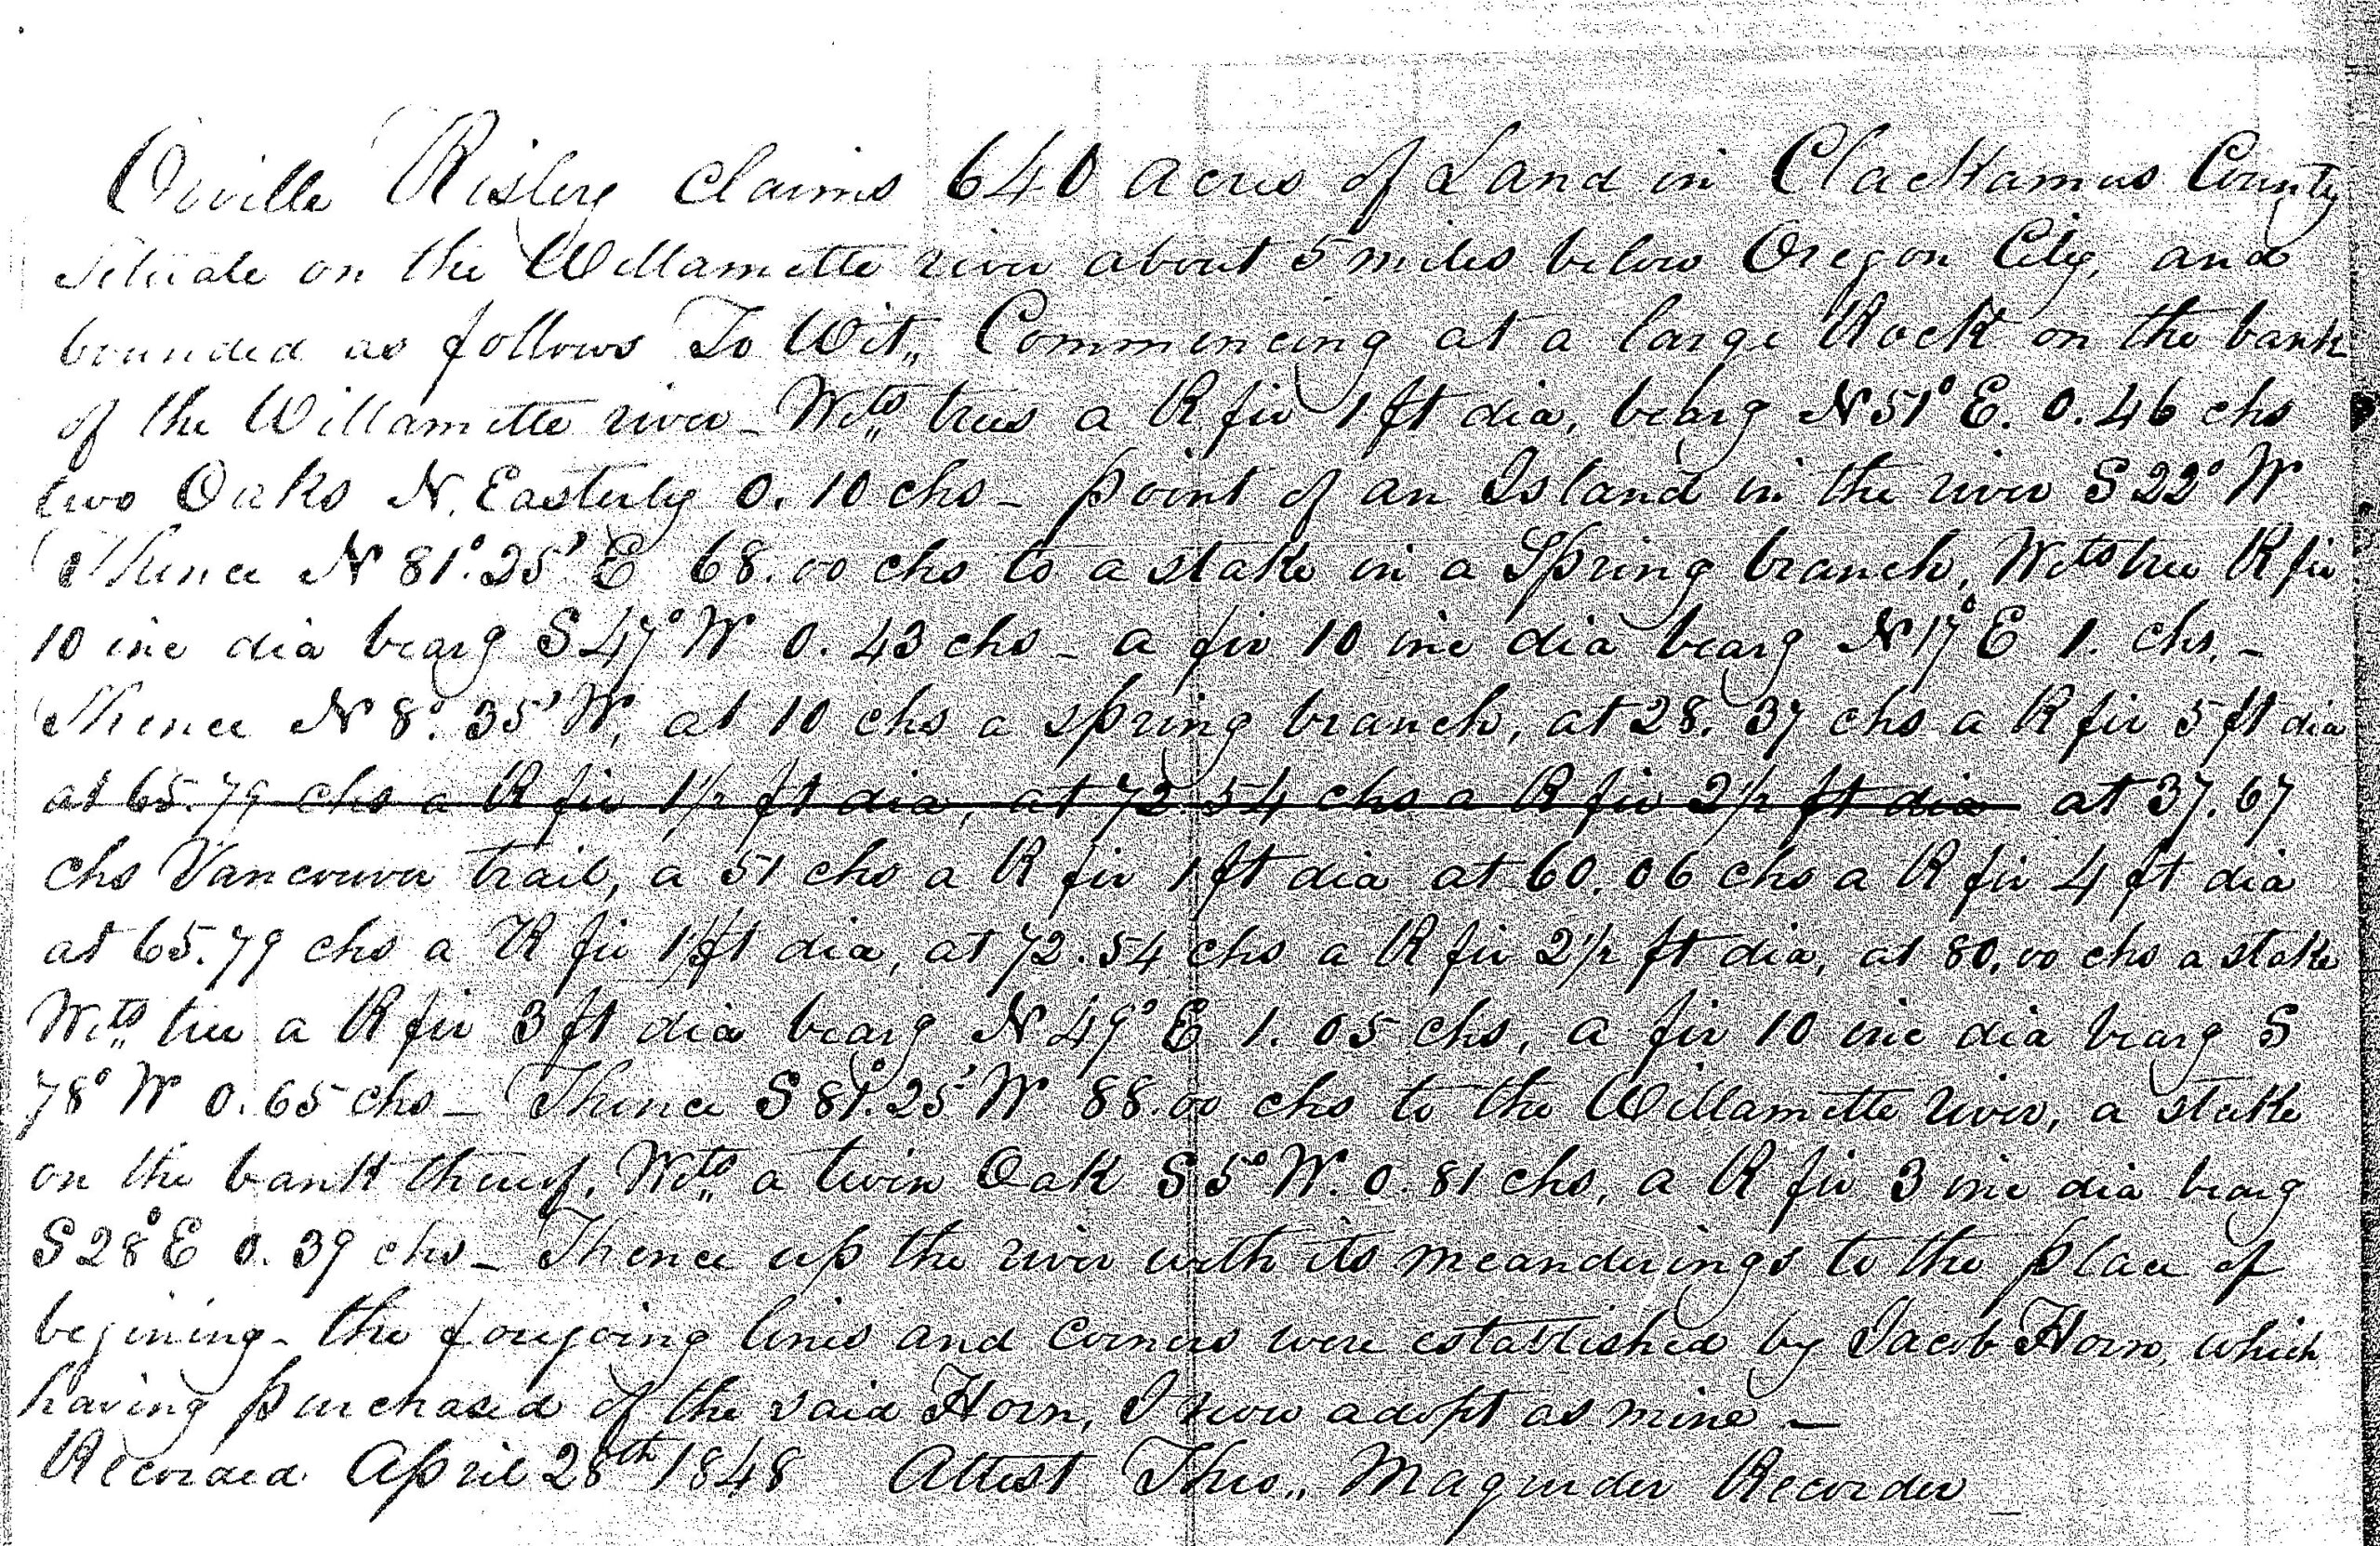 Orville Risley claims 640 acres of Land in Clackamas County
situate on the Willamette river about 5 miles below Oregon City, and
bounded as follows To Wit,, Commencing at a large Rock on the bank
of the Willamette river – Wits,, trees a R fir 1 ft dia, bearg N 51° E. 0.46 chs
two Oaks N. Easterly 0.10 chs – point of an Island in the river S 22° W
Thence N 81°.25' E 68.00 chs to a stake in a Spring branch, Wits tree R fir
10 inc dia bearg S 47° W 0.43 chs – a fir 10 inc dia bearg N 17° E 1. chs. –
Thence N 8°.35' W, at 10 chs a spring branch, at 28.37 chs a R fir 5 ft dia
at 65.79 chs a R fir 1 1/2 ft dia, at 72.54 chs a R fir 2 1/2 ft dia at 37.67
chs Vancouver trail, a 51 chs a R fir 1 ft dia at 60.06 chs a R fir 4 ft dia
at 65.79 chs a R fir 1 1/2 ft dia, at 72.54 chs a R fir 2 1/2 ft dia, at 80.00 chs a stake
Wits,, tree a R fir 3 ft dia bearg N 49° E 1.05 chs, a fir 10 inc dia bearg S
78° W 0.65 chs – Thence S 81°.25' W 88.00 chs to the Willamette river, a stake
on the bank thereof, Wits,, a twin Oak S 5° W. 0.81 chs, a R fir 3 inc dia bearg
S 28° E 0.39 chs – Thence up the river with its meanderings to the place of
begining – the foregoing lines and corners were established by Jacob Horn, which
having purchased of the said Horn, I now adopt as mine –
Recorded April 28th 1848 Attest Theo,, Magruder Recorder